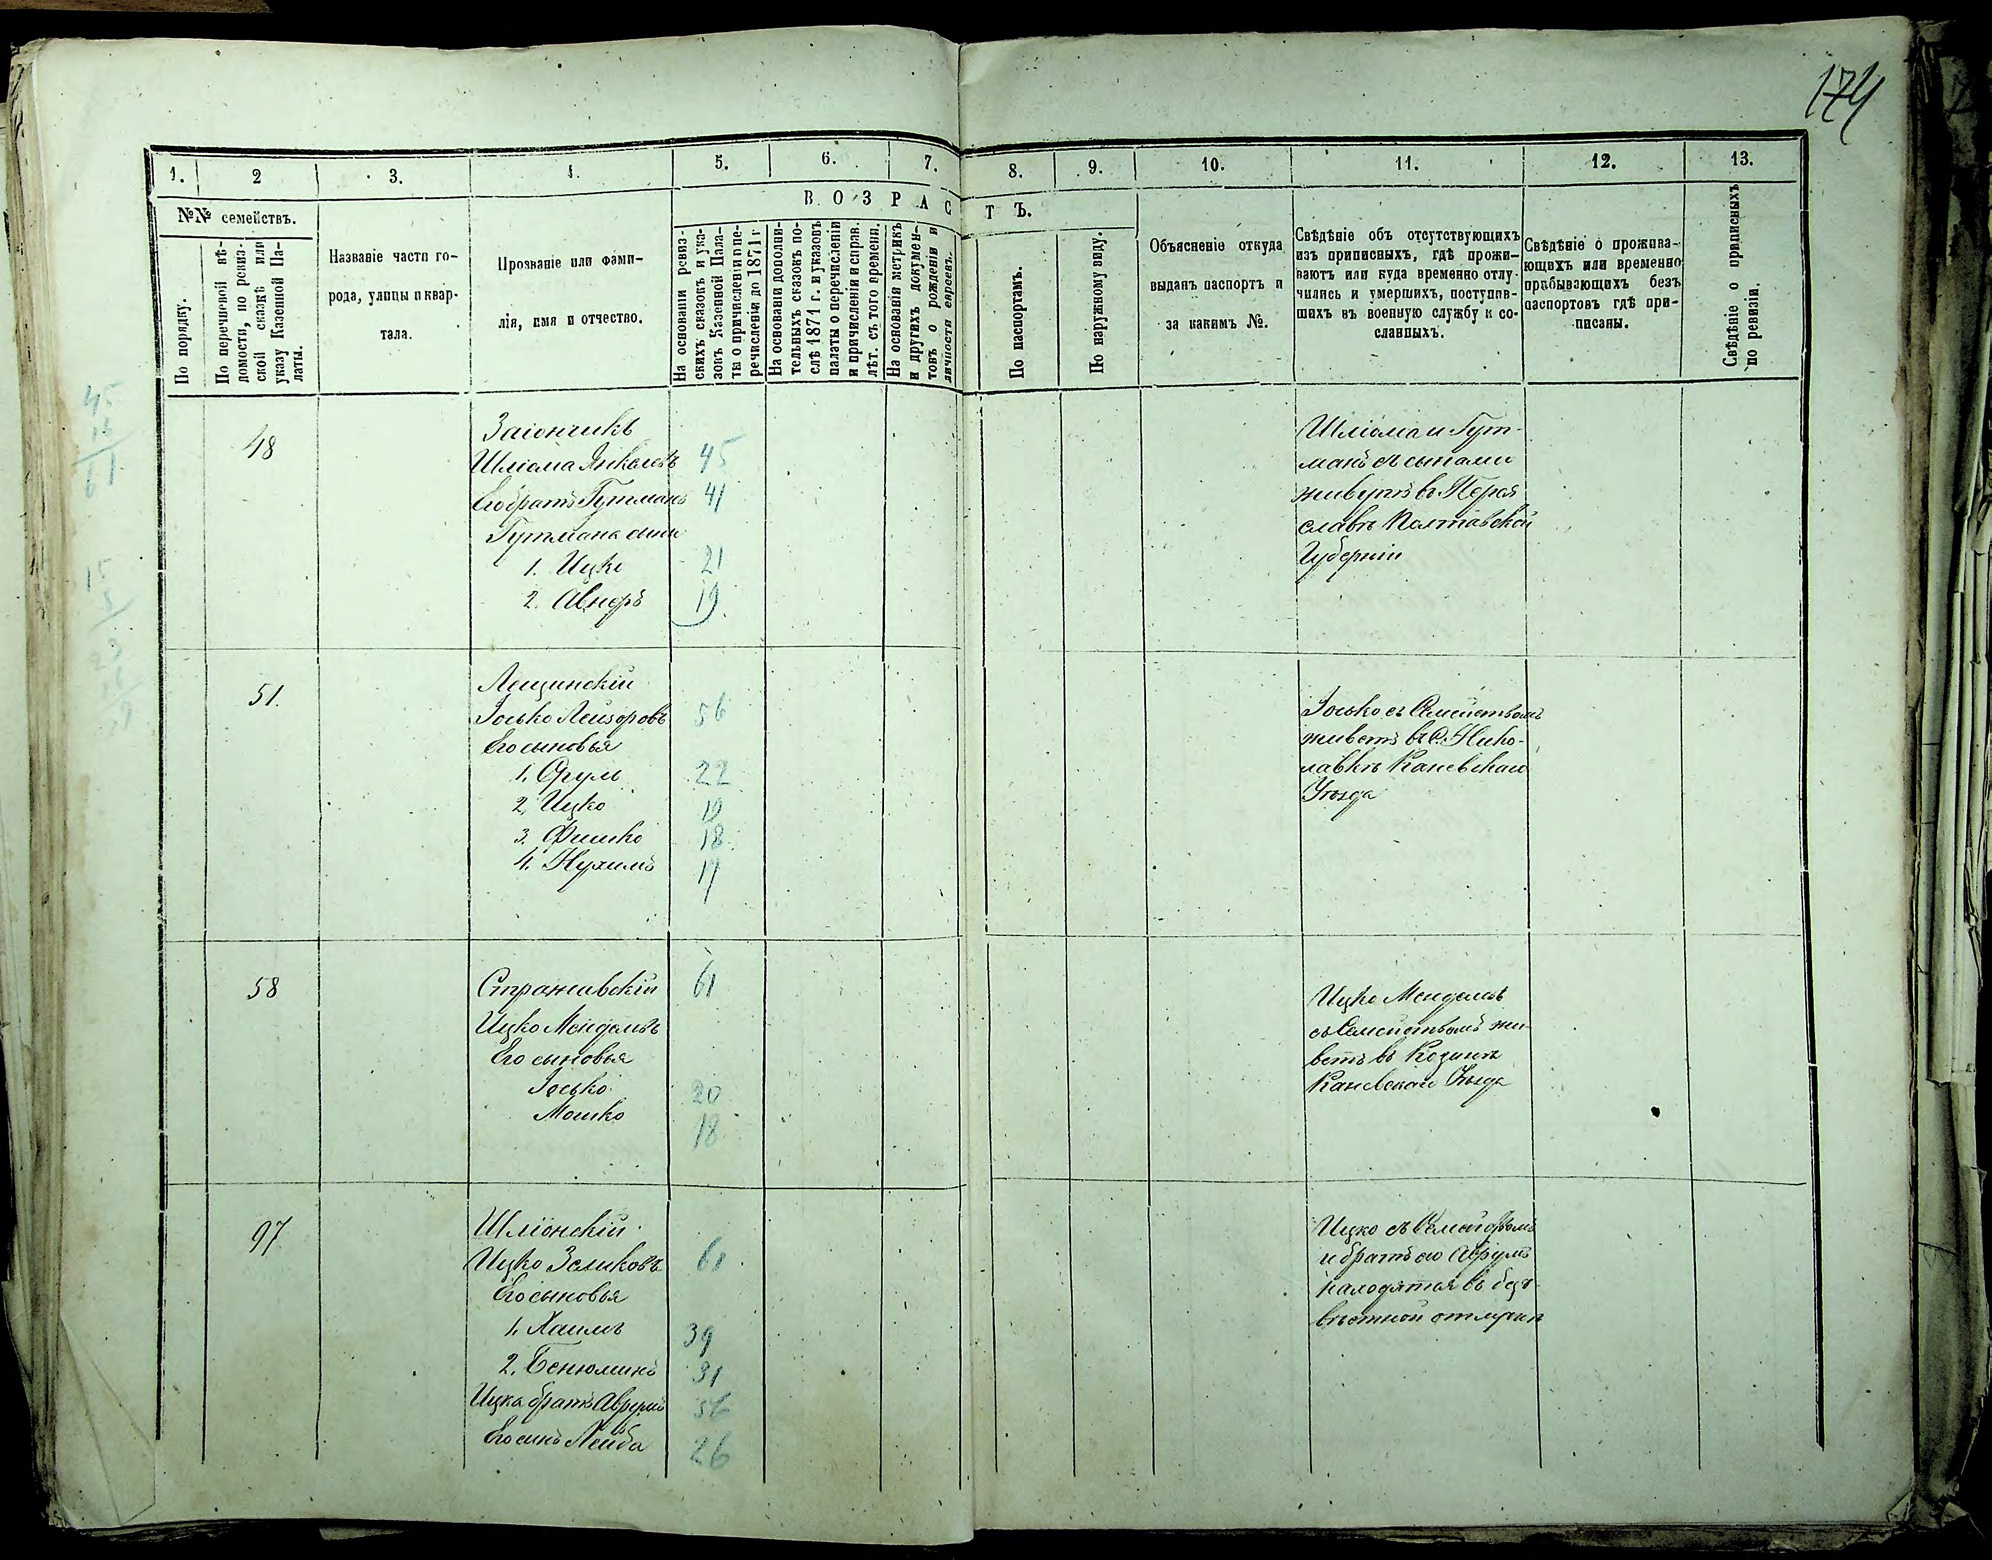 174
1. 2 3. 4. 5. 6. 7. 8. 9. 10. 11. 12. 13.
№№ семействъ.
ВОЗРАСТЪ.
По порядку.
По перечневой вѣ-
домости, по ревиз-
ской сказкѣ или
указу Казенной Па-
латы.
Названіе части го-
рода, улицы и квар-
тала.
Прозваніе или фами-
лія, имя и отчество.
На основаніи ревиз-
скихъ сказокъ и ука-
зовъ Казенной Пала-
ты о причисленіи и пе-
речисленіи до 1871 г.
На основаніи дополни-
тельныхъ сказокъ по-
слѣ 1871 г. и указовъ
палаты о перечисленіи
и причисленіи и справ.
лѣт. съ того времени.
На основаніи метрикъ
и другихъ докумен-
товъ о рожденіи и
личности евреевъ.
По паспортамъ.
По наружному виду.
Объясненіе откуда
выданъ паспортъ и
за какимъ №.
Свѣдѣніе объ отсутствующихъ
изъ приписныхъ, гдѣ прожи-
ваютъ или куда временно отлу-
чились и умершихъ, поступив-
шихъ въ военную службу и со-
сланныхъ.
Свѣдѣніе о прожива-
ющихъ или временно
прибывающихъ безъ
паспортовъ гдѣ при-
писаны.
Свѣдѣніе о приписныхъ
по ревизіи.
45
61
48
Заіончикъ
Шліома Янкелевъ 45
Его братъ Гутманъ 41
Гутмана сыны
1. Ицко 21
2. Авнеръ 19
Шліома и Гут-
манъ съ сынами
живутъ въ Перея
славѣ Полтавской
Губерніи
15
51.
Лещинскій
Іосько Лейзоровъ 56
Его сыновья
1. Сруль 22
2. Ицко 19
3. Фишко 18
4. Нухимъ 17
Іосько съ Семействомъ
живетъ въ С. Нико-
лавкѣ Каневскаго
Уѣзда
58
Стражавскій 61
Ицко Менделевъ
Его сыновья
Іосько 20
Мошко 18
Ицко Менделевъ
съ Семействомъ жи-
ветъ въ Козинѣ
Каневскаго Уѣзда
97
Шліонскій
Ицко Зеликовъ 61
Его сыновья
1. Хаимъ 39
2. Бенюминъ 31
Ицка братъ Аврумъ 56
Его сынъ Лейба 26
Ицко съ Семействомъ
и братъ его Аврумъ
находятся въ безъ-
вѣстной отлучкѣ